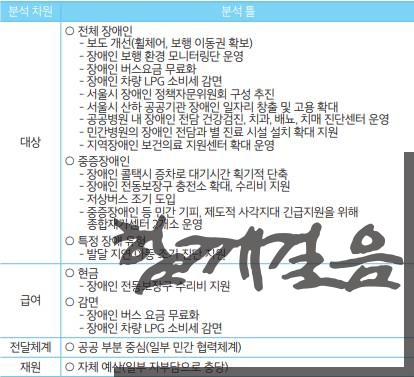 분석 차원 분석 틀
대상
○ 전체 장애인
- 보도 개선(휠체어, 보행 이동권 확보)
- 장애인 보행 환경 모니터링단 운영
- 장애인 버스요금 무료화
- 장애인 차량 LPG 소비세 감면
- 서울시 장애인 정책자문위원회 구성 추진
- 서울시 산하 공공기관 장애인 일자리 창출 및 고용 확대
- 공공병원 내 장애인 전담 건강검진, 치과, 배뇨, 치매 진단센터 운영
- 민간병원의 장애인 전담과 별 진료 시설 설치 확대 지원
- 지역장애인 보건의료 지원센터 확대 운영
○ 중증장애인
- 장애인 콜택시 증차로 대기시간 획기적 단축
- 장애인 전동보장구 충전소 확대, 수리비 지원
- 저상버스 조기 도입
- 중증장애인 등 민간 기피, 제도적 사각지대 긴급지원을 위해
종합재가센터 2개소 운영
○ 특정 장애 유형
- 발달 지연 아동 조기 진단 지원
함께걸음
급여
○ 현금
- 장애인 전동보장구 수리비 지원
○ 감면
- 장애인 버스 요금 무료화
- 장애인 차량 LPG 소비세 감면
전달체계 ○ 공공 부분 중심(일부 민간 협력체계)
재원 ○ 자체 예산(일부 자부담으로 충당)